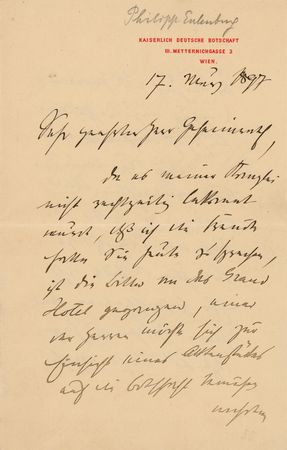 Philipp Eulenburg
KAISERLICH DEUTSCHE BOTSCHAFT
III. METTERNICHGASSE 3
WIEN.
17. März 1897
Sehr geehrter Herr Geheimrath,
da es meiner Kanzlei
nicht rechtzeitig bekannt
wurde, daß ich die Freude
hatte Sie heute zu sprechen,
ist die Bitte in das Grand
Hotel gegangen, einer
der Herren möchte sich zur
Einsicht eines Aktenstückes
auf die Botschaft bemühen